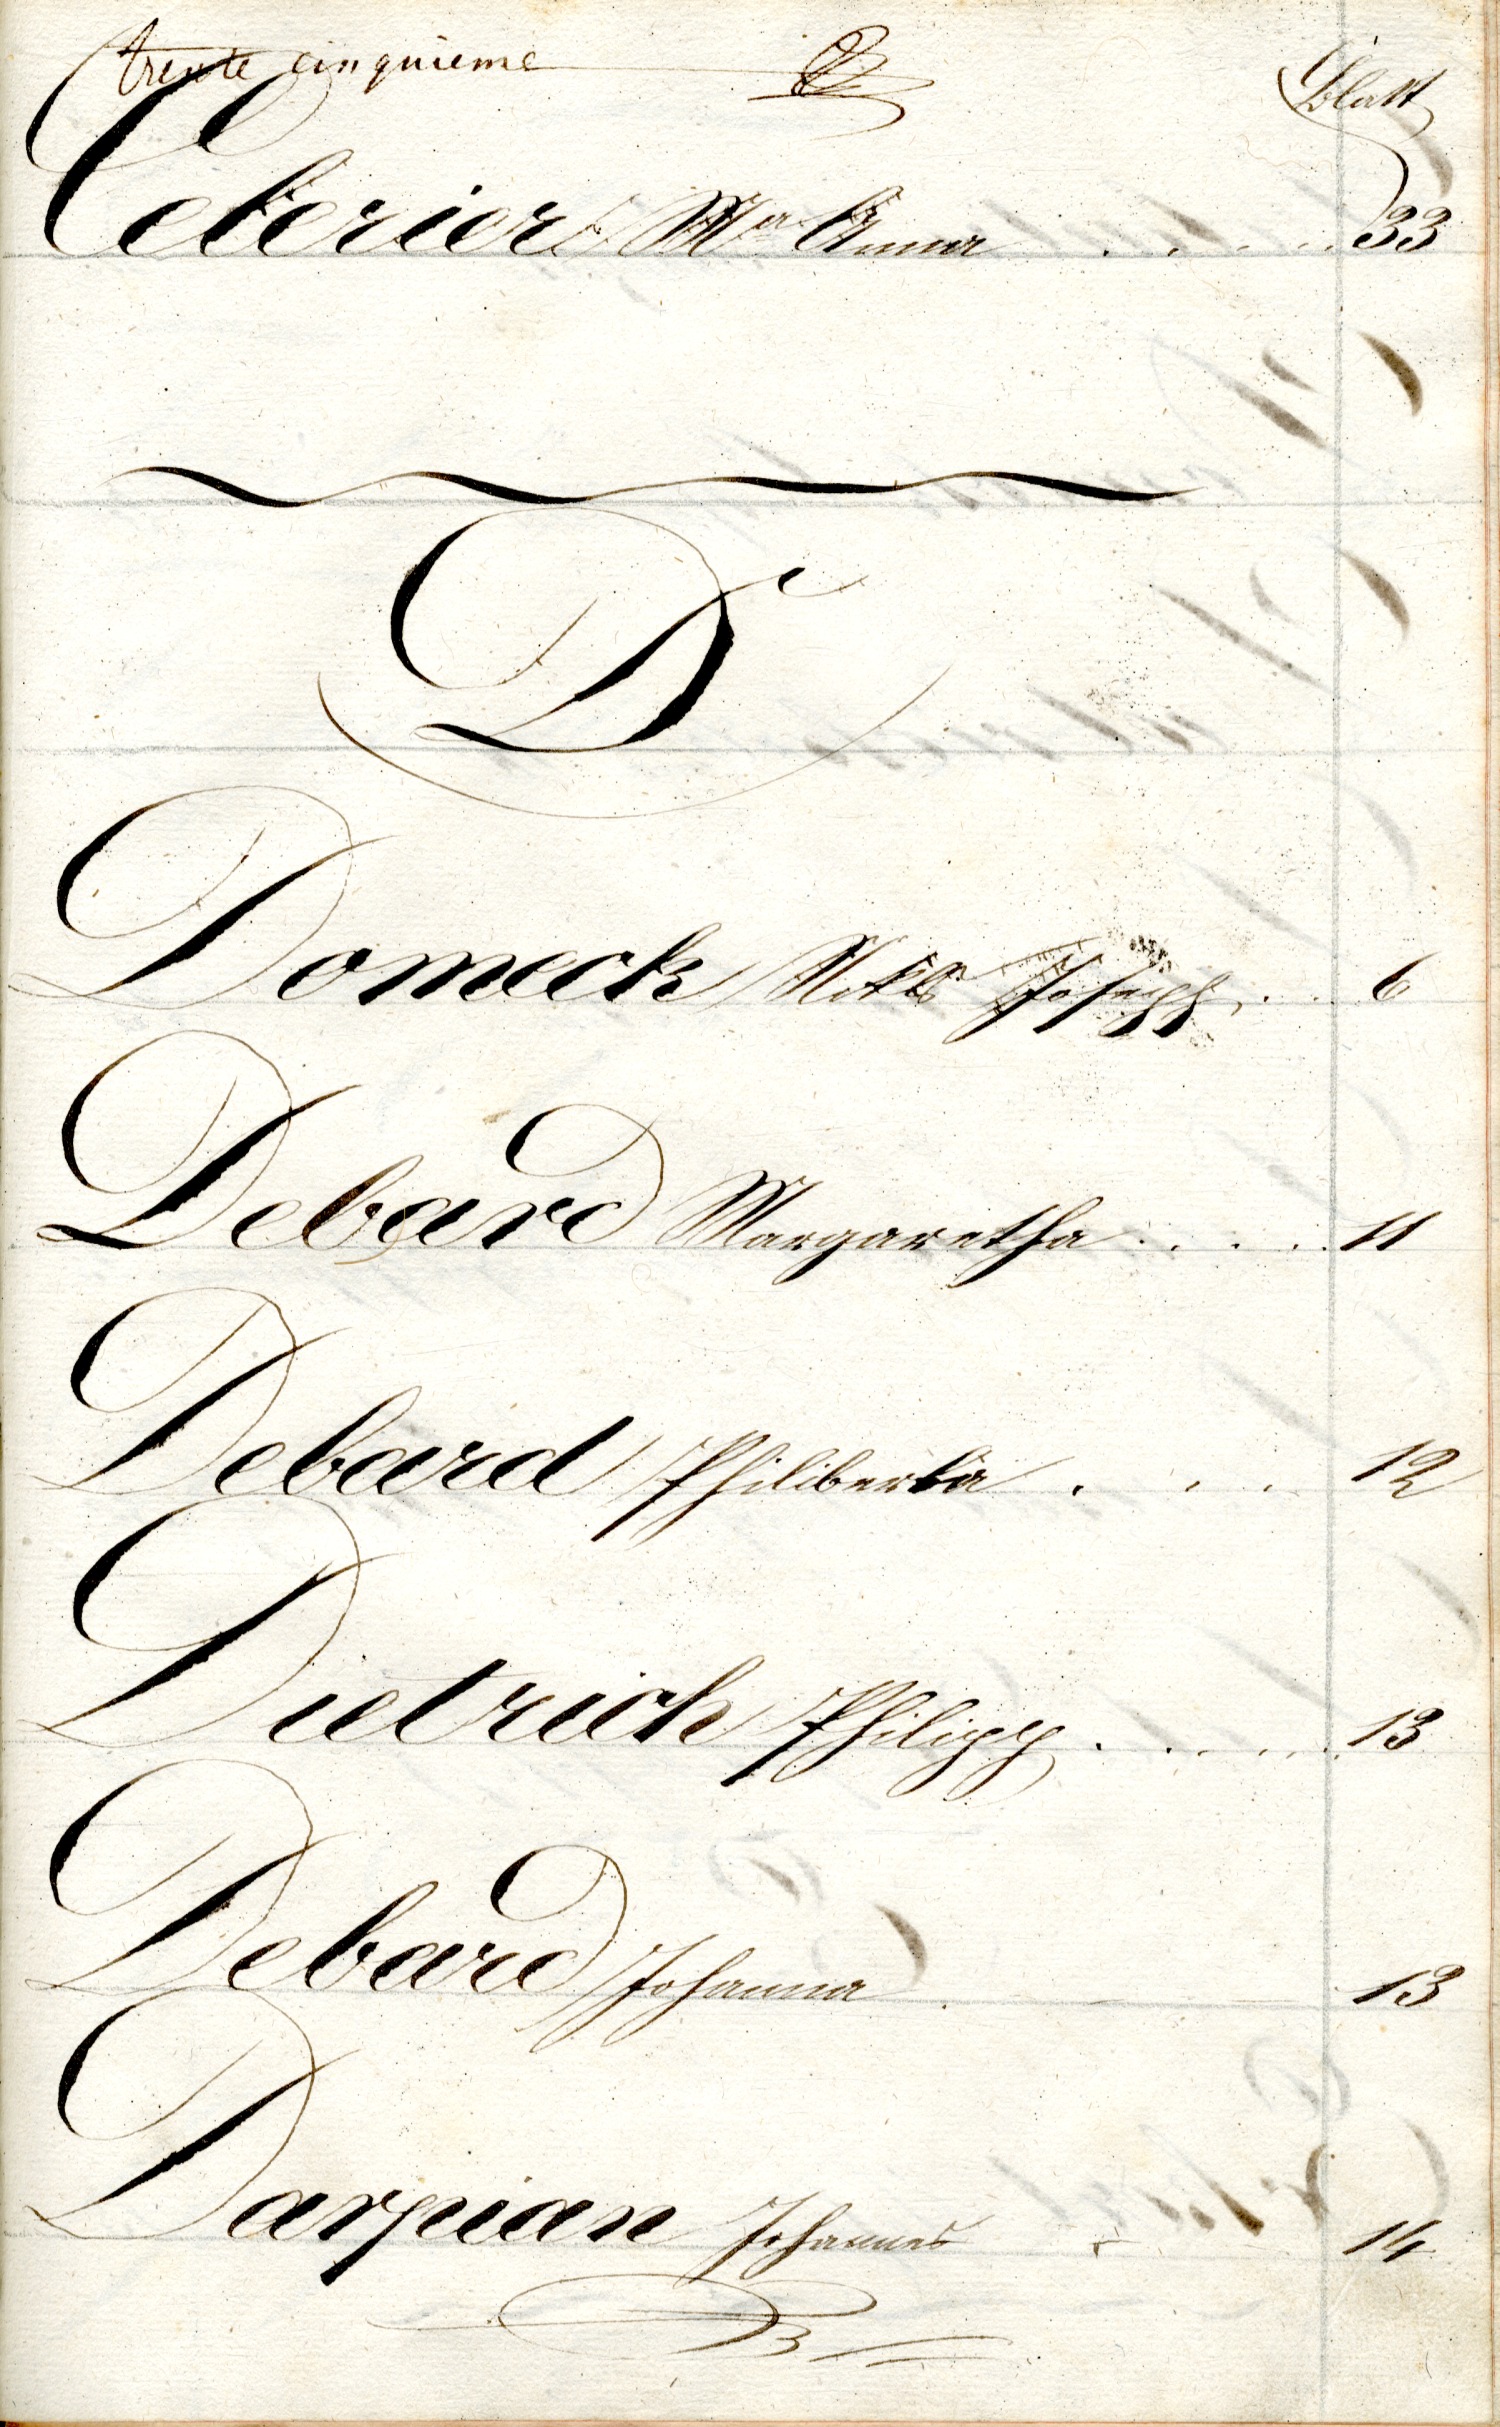 trente cinquieme
Blatt
Ceterier Ma Anna . . . . . 33
D
Domeck Nikls Joseph . . . 6
Debard Margaretha . . . . 11
Debard Philiberta . . . 12
Dietrich Philipp . . . . . 13
Debard Johanna . 13
Darpian Johannes 14